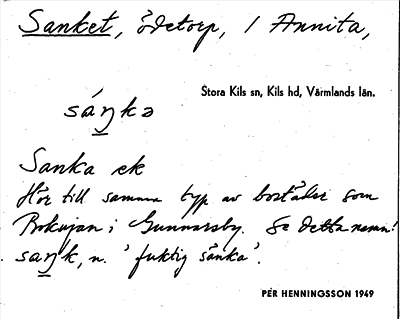 Sanket, ödetorp, 1 Annita,
Stora Kils sn, Kils hd, Värmlands län.
sáŋkə
Sanka ek
Hör till samma typ av bostäder som
Rokujan i Gunnarsby. Se detta namn!
saŋk, n. 'fuktig sänka'.
PER HENNINGSSON 1949